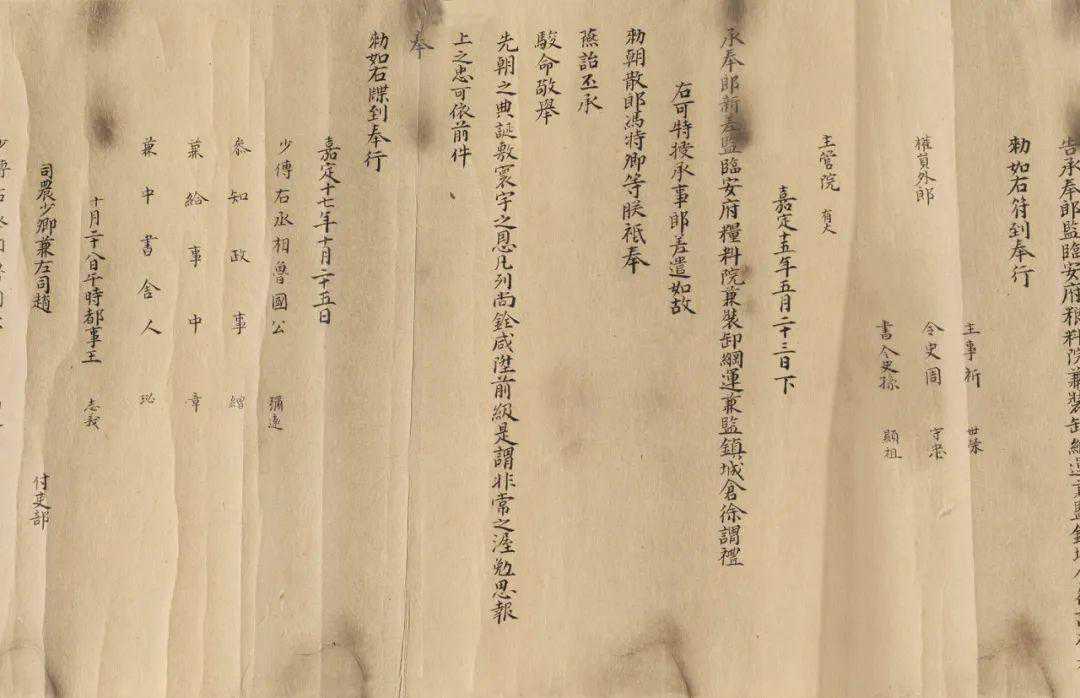 告承奉郎監臨安府粮料院兼裝卸綱運兼監鎮城倉
勑如右符到奉行
主事祈 世榮
權員外郎 令史周 守忠
書令史孫 顯祖
主管院 有人
嘉定十五年五月二十三日下
承奉郎新差監臨安府糧料院兼裝卸綱運兼監鎮城倉徐謂禮
右可特授承事郎差遣如故
勑朝散郎馮特卿等朕祗奉
燕詒丕承
駿命敬舉
先朝之典誕敷寰宇之恩凡列尚銓咸陞前級是謂非常之渥勉思報
上之忠可依前件
奉
勑如右牒到奉行
嘉定十七年十月二十五日
少傅右丞相魯國公 彌遠
叅知政事 繒
兼給事中 章
兼中書舍人 珌
十月二十八日午時都事王 志義
司農少卿兼左司趙 付吏部
少傅右丞相